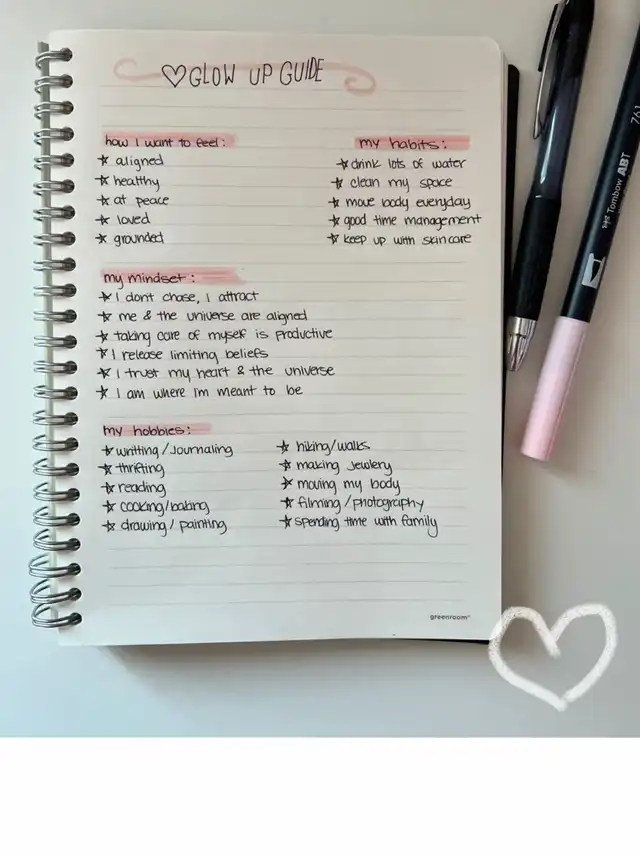 ♡GLOW UP GUIDE
how I want to feel:
☆ aligned
☆ healthy
☆ at peace
☆ loved
☆ grounded
my habits:
☆ drink lots of water
☆ clean my space
☆ move body everyday
☆ good time management
☆ keep up with skincare
my mindset:
☆ I don't chase, I attract
☆ me & the universe are aligned
☆ taking care of myself is productive
☆ I release limiting beliefs
☆ I trust my heart & the universe
☆ I am where I'm meant to be
my hobbies:
☆ writting/Journaling
☆ thrifting
☆ reading
☆ cooking/baking
☆ drawing/painting
☆ hiking/walks
☆ making Jewlery
☆ moving my body
☆ filming/photography
☆ spending time with family
greenroom®
Tombow ABT
761